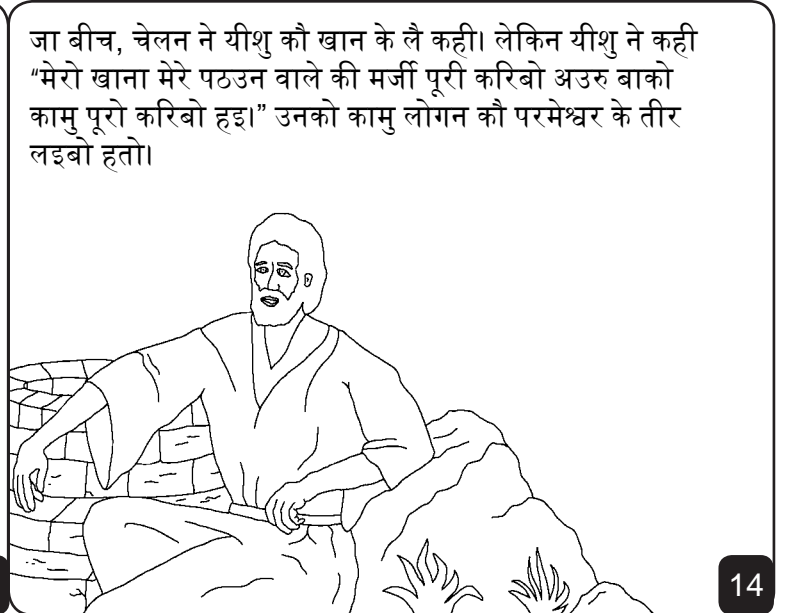 जा बीच, चेलन ने यीशु कौ खान के लै कही। लेकिन यीशु ने कही
“मेरो खाना मेरे पठउन वाले की मर्जी पूरी करिबो अउरु बाको
कामु पूरो करिबो हइ।” उनको कामु लोगन कौ परमेश्वर के तीर
लइबो हतो।
14